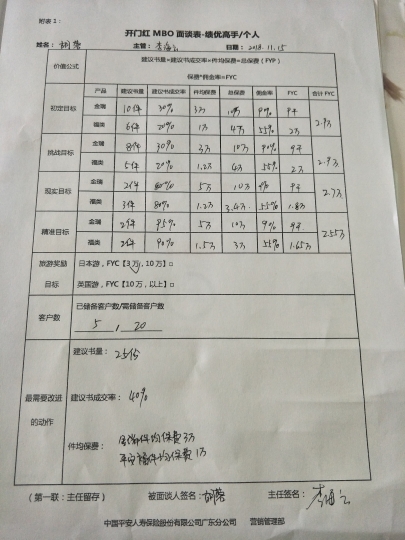 附表1：
开门红 MBO 面谈表-绩优高手/个人
姓名： 主管： 日期：2018.11.15
价值公式 建议书量*建议书成交率*件均保费=总保费（FYP）
保费*佣金率=FYC
产品 建议书量 建议书成交率 件均保费 总保费 佣金率 FYC 合计 FYC
初定目标 金瑞 10件 30% 3万
福类 6件 1万 4万 55% 2万
挑战目标 金瑞 8件 30% 3万 10万
福类 5件 20% 1.2万 4万 55% 2万
现实目标 金瑞 2件 80% 5万 10万
福类 3件 80% 1.2万 55% 1.8万
精准目标 金瑞 2件 95% 5万 10万
福类 2件 90% 1.5万 3万 55% 1.65万 2.55万
旅游奖励 日本游，FYC【3万，10万）□
目标 英国游，FYC【10万，以上】□
客户数 已储备客户数/需储备客户数
5 / 20
最需要改进
的动作
建议书量：25件
建议书成交率：40%
件均保费：
件均保费3万
平安福件均保费1万
（第一联：主任留存） 被面谈人签名： 主任签名：
中国平安人寿保险股份有限公司广东分公司 营销管理部